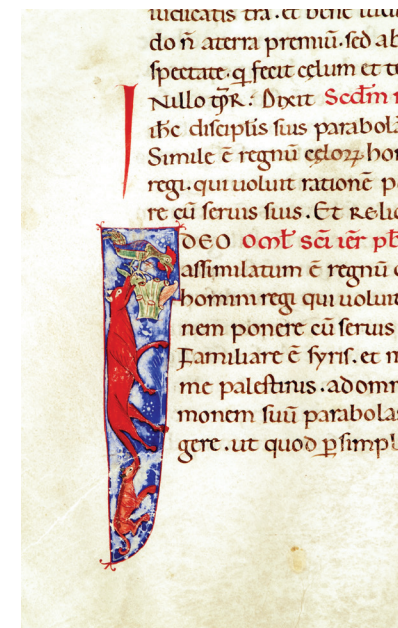 iudicatis t̄ra. et bene
do n̄ aterra premiū. sed ab
spectate. q fecit celum et te
Nillo t̄pR: Dixit Scd̄m
ih̄c disciplis suis parabolā
Simile ē regnū cęloꝝ hom
regi. qui uoluit rationē p
re cū seruis suis. Et Reli
DEO Oml̄ sc̄i iēr pb̄
assimilatum ē regnū c
homini regi qui uoluit
nem ponere cū seruis
Familiare ē syris. et m
me palestinis. ad omn
monem suū parabolas
gere. ut quod ꝑ simpl